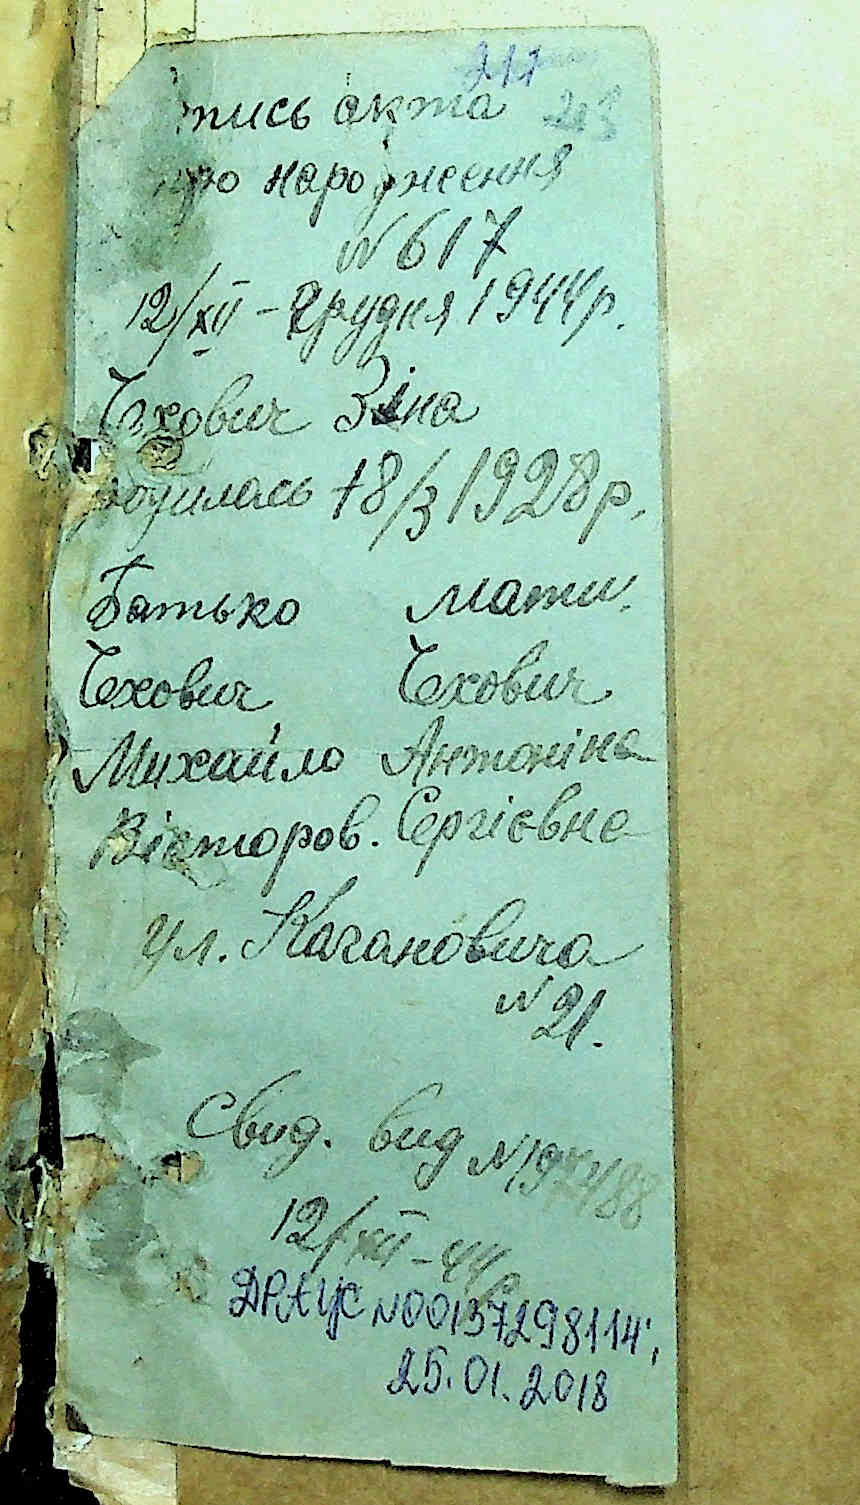 211
пись акта
про народження
N 617
12/XII - Грудня 1944 р.
Чехович Зіна
родилась 18/3 1928 р.
Батько Мати
Чехович Чехович
Михайло Антоніна
Вікторов. Сергієвна
ул. Кагановича
N 21.
Свид. вид N
12/XII - 44 р
ДРАЦС N00137298114;
25.01.2018